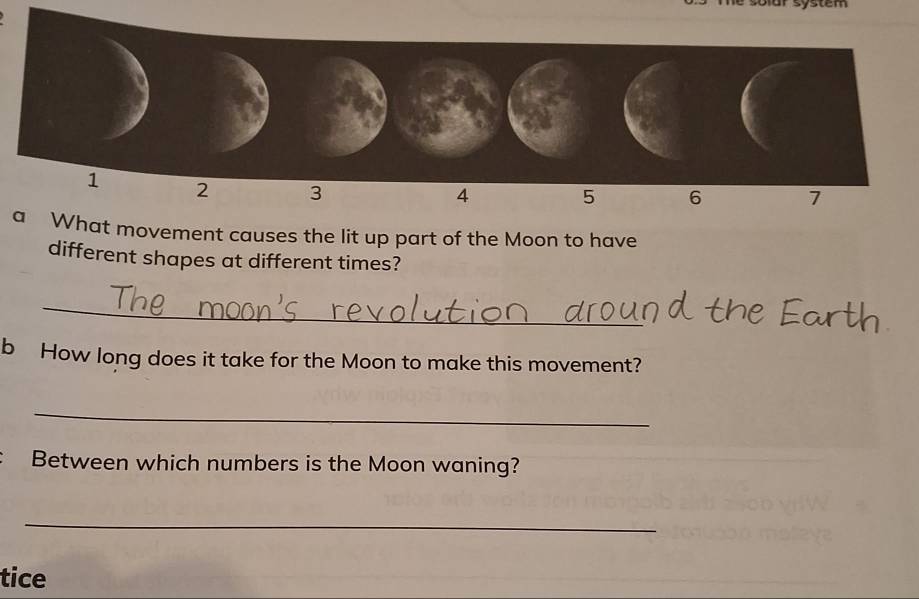 The solar system
1 2 3 4 5 6 7
a What movement causes the lit up part of the Moon to have
different shapes at different times?
The moon's revolution around the Earth
b How long does it take for the Moon to make this movement?
Between which numbers is the Moon waning?
tice